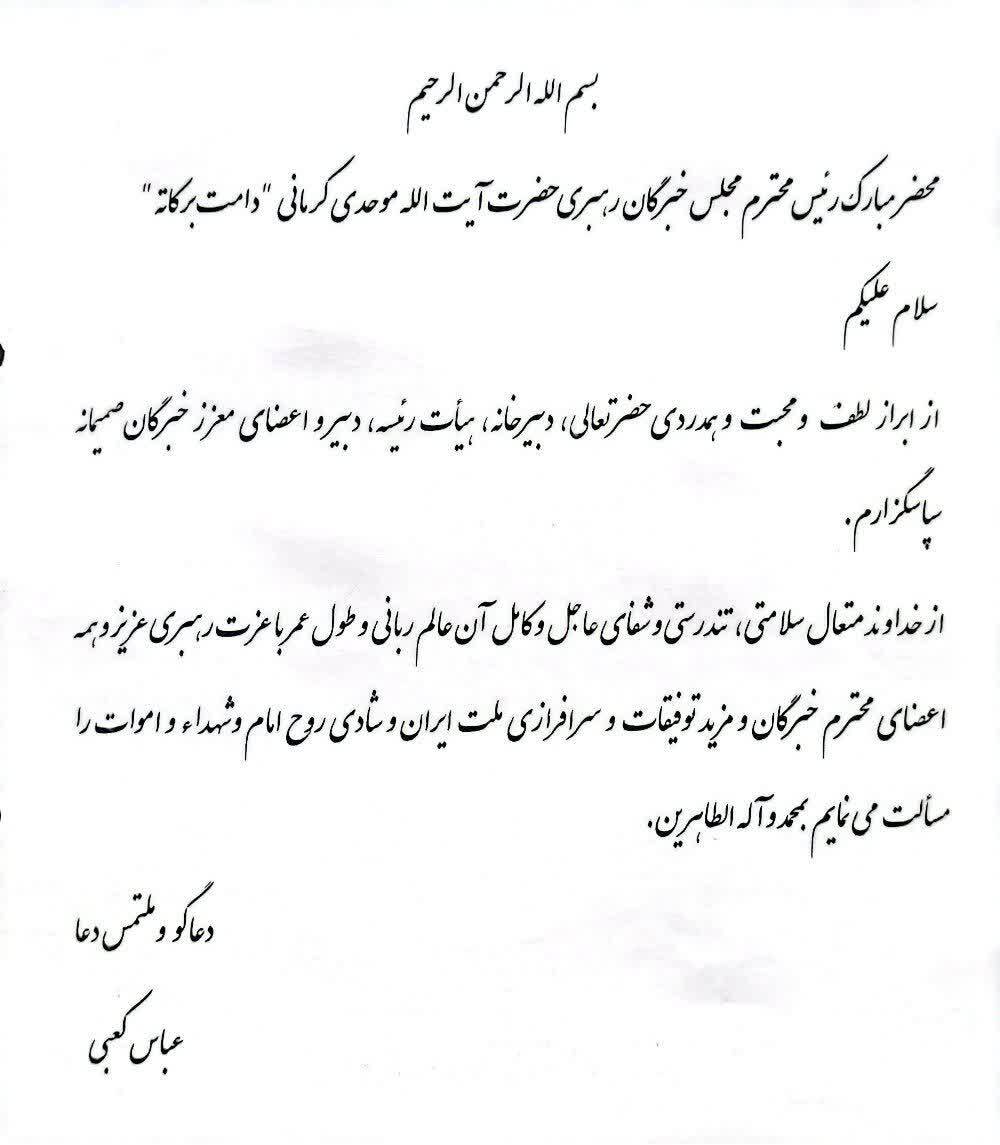 بسم الله الرحمن الرحیم
محضر مبارک رئیس محترم مجلس خبرگان رهبری حضرت آیت الله موحدی کرمانی "دامت برکاته"
سلام علیکم
از ابراز لطف و محبت و همدردی حضرتعالی، دبیرخانه، هیأت رئیسه، دبیر و اعضای معزز خبرگان صمیمانه
سپاسگزارم.
از خداوند متعال سلامتی، تندرستی و شفای عاجل و کامل آن عالم ربانی و طول عمر با عزت رهبری عزیز و همه
اعضای محترم خبرگان و مزید توفیقات و سرافرازی ملت ایران و شادی روح امام و شهداء و اموات را
مسألت می نمایم بمحمد و آله الطاهرین.
دعاگو و ملتمس دعا
عباس کعبی